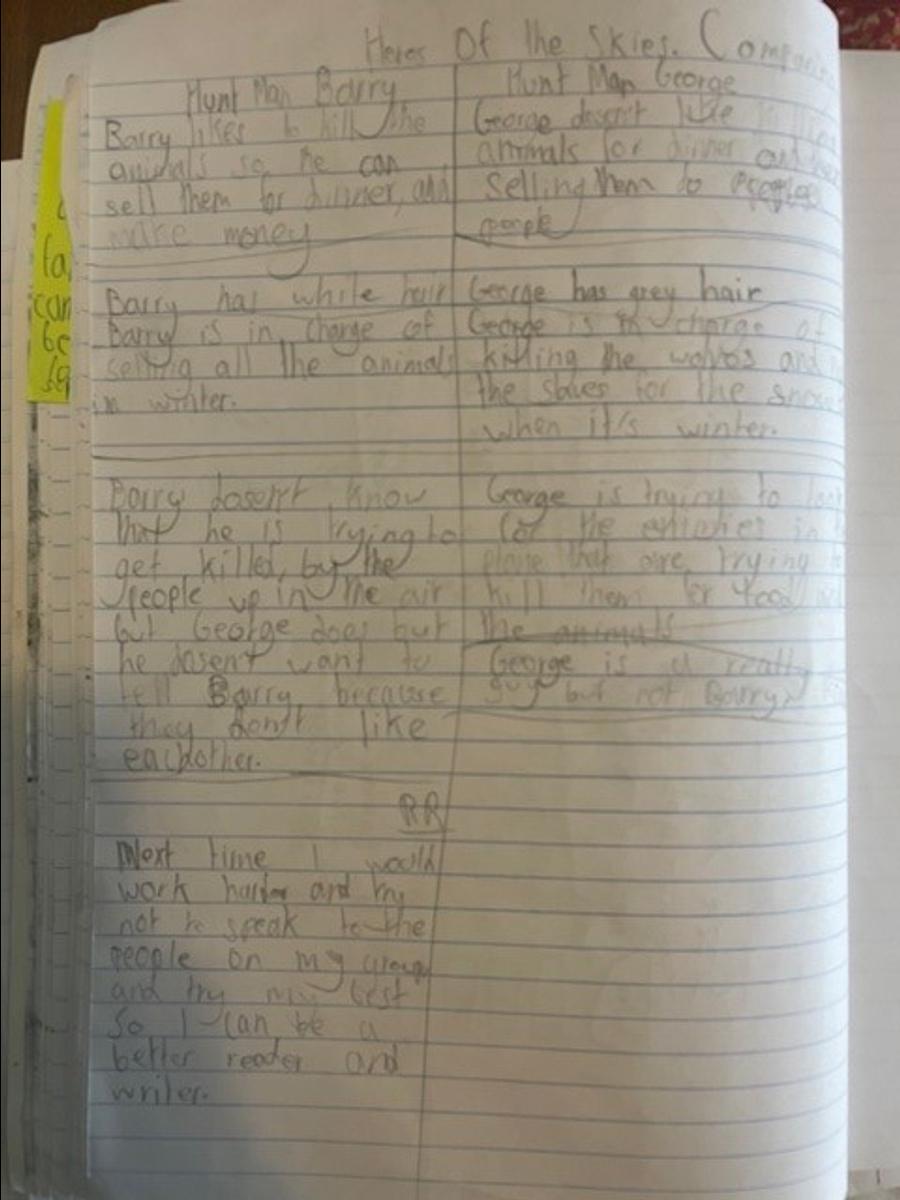 Heros Of the Skies.
Hunt Man Barry
Barry likes to kill the
animals so he can
sell them for dinner, and
make money
Barry has white hair
Barry is in charge of
selling all the animals
in winter.
Barry dosen't know
that he is trying to
get killed, by the
people up in the air
but George does but
he dosen't want to
tell Barry because
they don't like
eachother.
Hunt Man George
George doesn't like
animals for dinner and
selling them to
people
George has grey hair
George is in charge of
killing the wolves and
the slaves for the
when it's winter.
George is trying to
for the in
plane that are trying
kill them for food
the animals
George is a really
guy but not Barry.
RR
Next time I would
work harder and try
not to speak to the
people on my group
and try my best
so I can be a
better reader and
writer.
fa
can
be